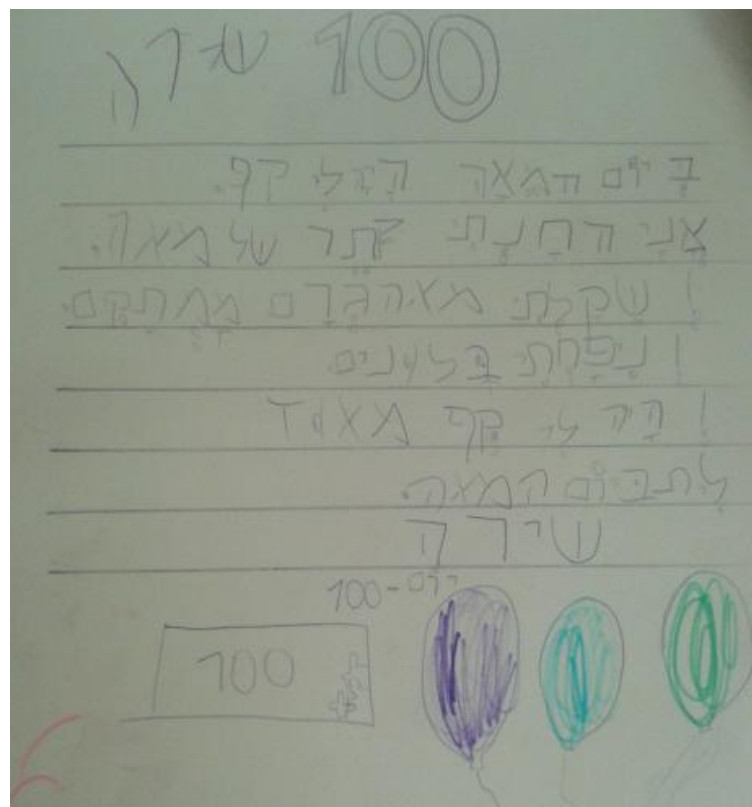 100 שירה
בַּ יוֹם הַמֵּאָה הָיָה לִי כֵּף.
אֲנִי הֵכַנְתִּי כֶּתֶר שֶׁל מֵאָה.
וְ שָׁקַלְתִּי מֵאָה גְּרַם מַמְתַּקִּם.
וְ נִיפַּחְתִּי בָּלוֹנִים
וְ הָיָה לִי כֵּף מְאוֹד
בְּיוֹם הַמֵּאָה.
שִׁירָה
יום-100
100